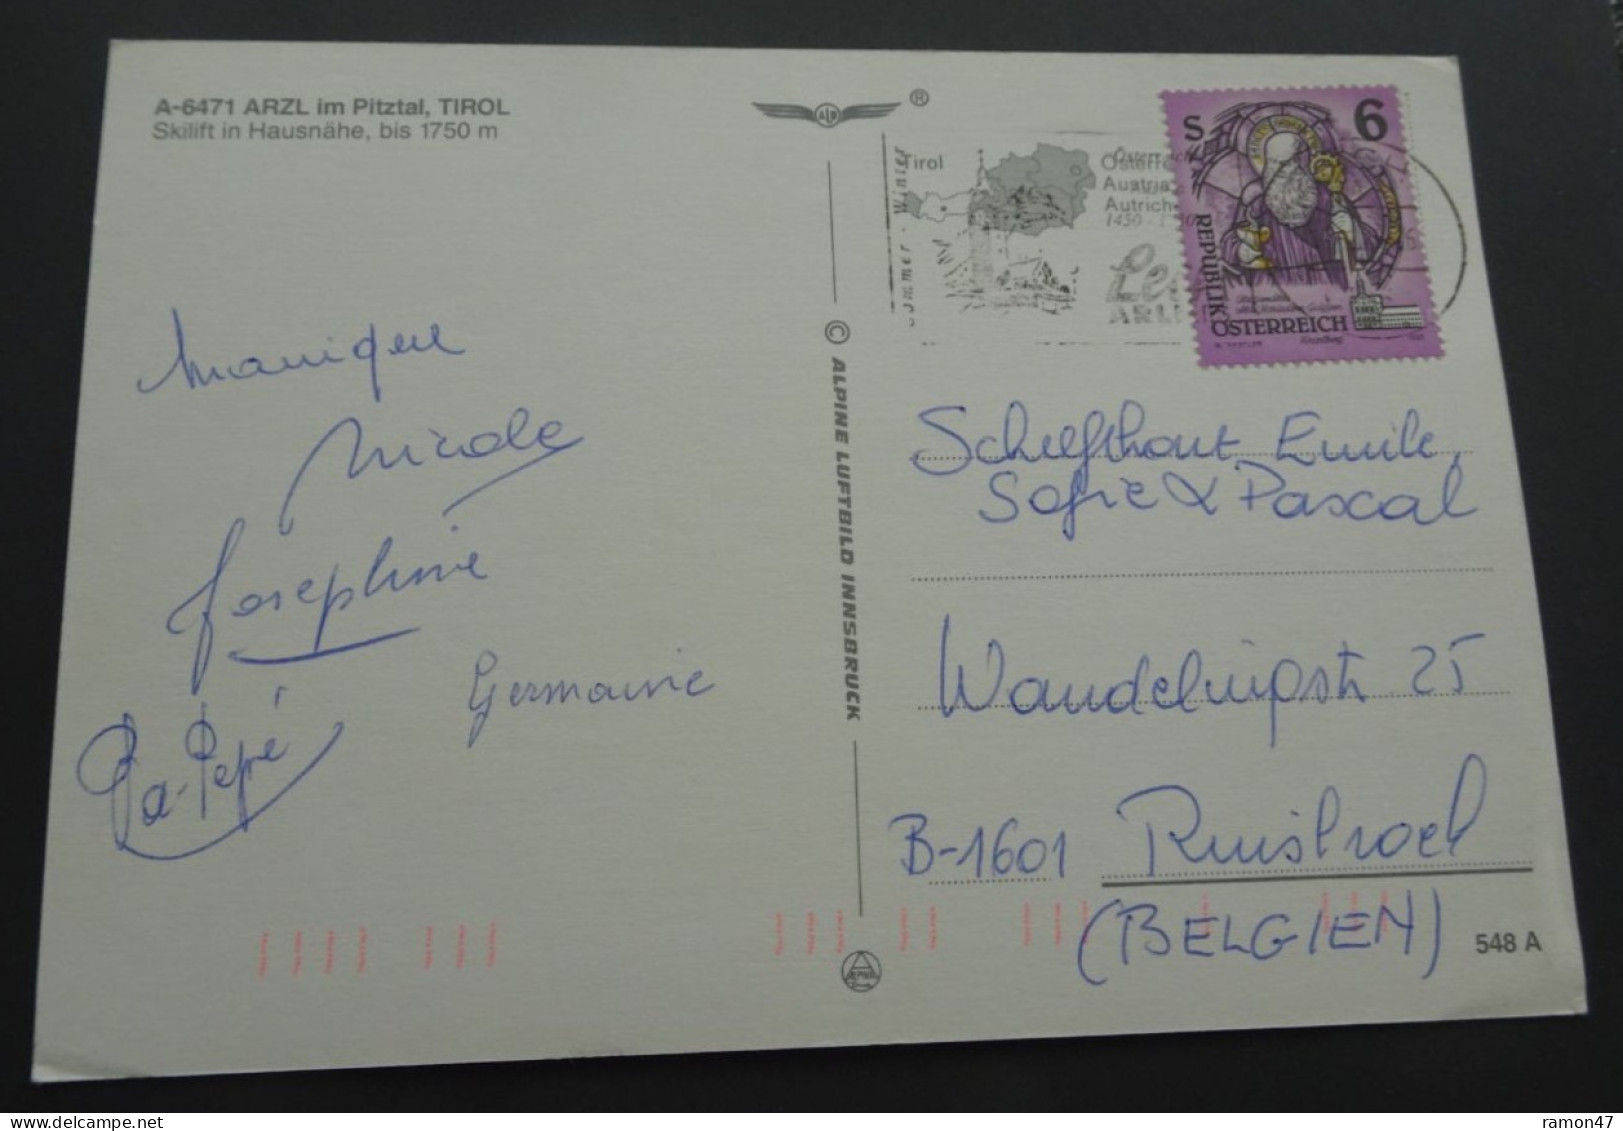 A-6471 ARZL im Pitztal, TIROL
Skilift in Hausnähe, bis 1750 m
ALB
®
Sommer · Winter
Tirol
Österre
Austria
Autriche
1450 - 1
ARL
S 6
REPUBLIK
ÖSTERREICH
manique
Nicole
Josephine
Germaine
Pa-Pepé
© ALPINE LUFTBILD INNSBRUCK
Schelfthout Emile,
Sofie & Pascal
Wandelingstr 25
B-1601 Ruisbroek
(BELGIEN)
548 A
ramon47